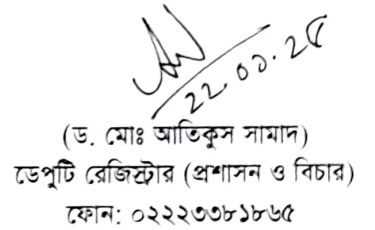 ২২.০১.২৫
(ড. মোঃ আতিকুস সামাদ)
ডেপুটি রেজিস্ট্রার (প্রশাসন ও বিচার)
ফোন: ০২২২৩৩৮১৮৬৫